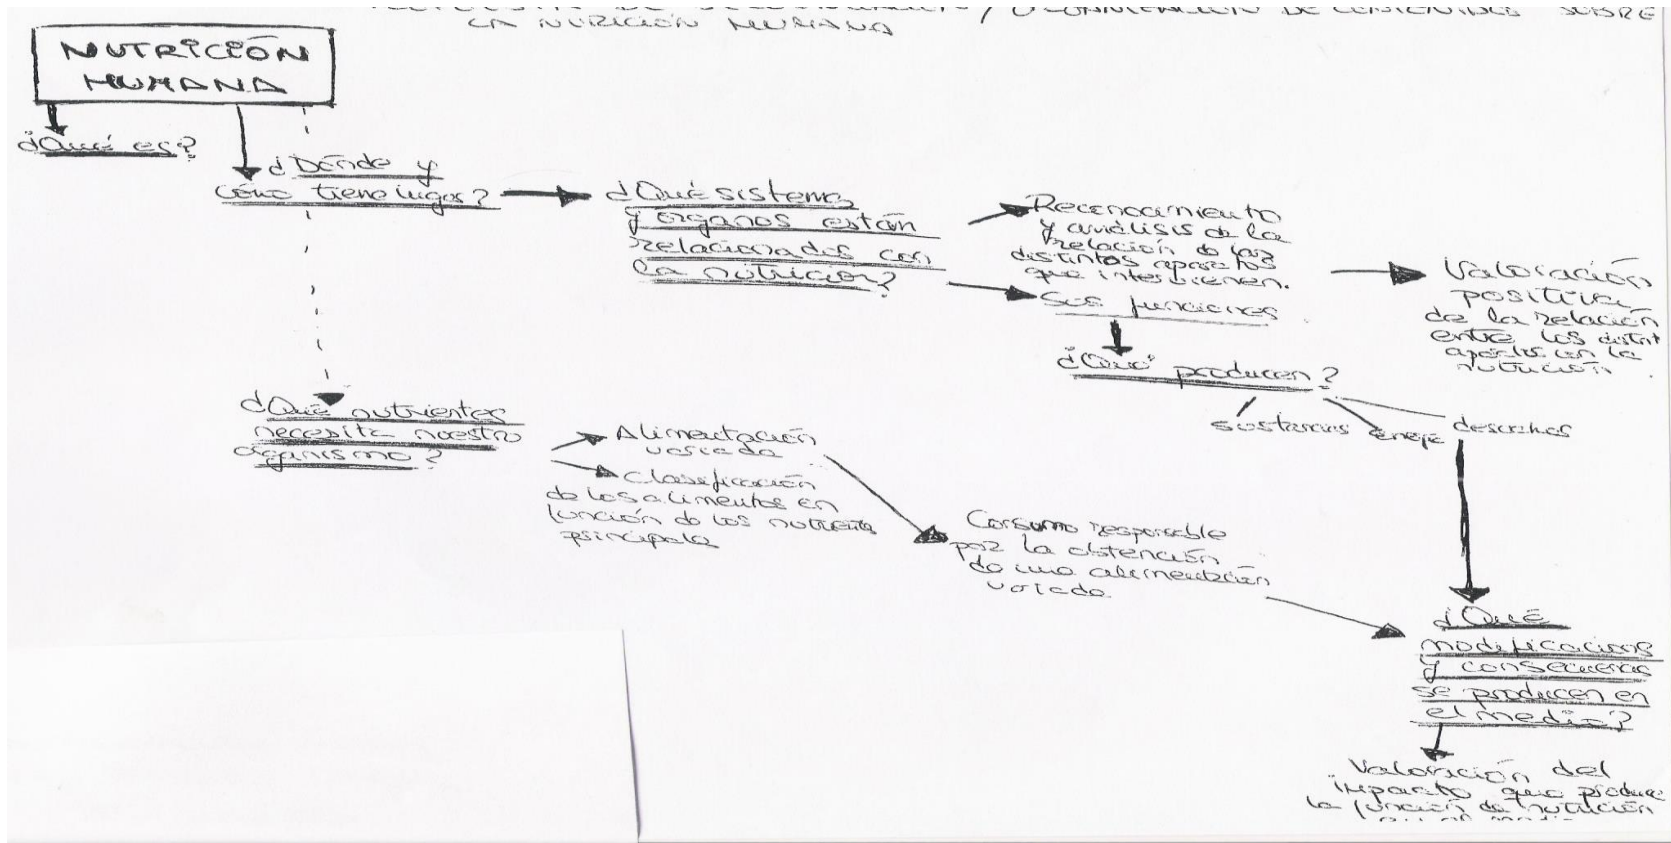 / ORGANIZACIÓN DE CONTENIDOS SOBRE
LA NUTRICIÓN HUMANA
NUTRICIÓN
HUMANA
¿Qué es?
¿Dónde y
cómo tiene lugar?
¿Qué sistemas
y órganos están
relacionados con
la nutrición?
Reconocimiento
y análisis de la
relación de los
distintos aparatos
que intervienen.
Sus funciones
Valoración
positiva
de la relación
entre los distint
aparatos en la
nutrición.
¿Qué producen?
sustancias energía desechos
¿Qué nutrientes
necesita nuestro
organismo?
Alimentación
variada
Clasificación
de los alimentos en
función de los nutrientes
principales
Consumo responsable
por la obtención
de una alimentación
variada.
¿Qué
modificaciones
y consecuencias
se producen en
el medio?
Valoración del
impacto que produce
la función de nutrición